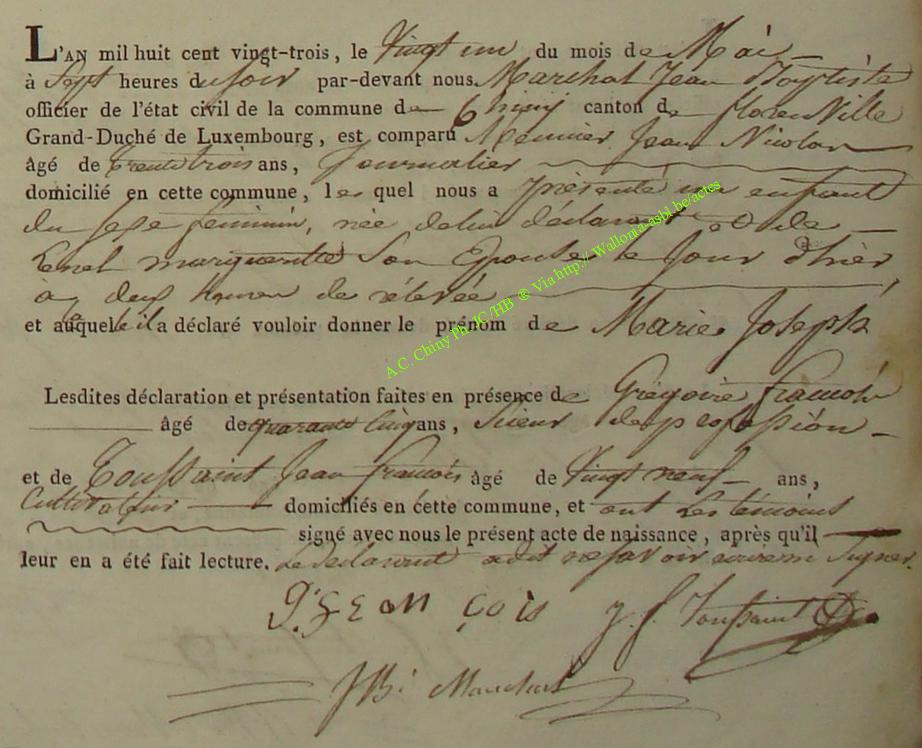 L'AN mil huit cent vingt-trois, le Vingt un du mois de Mai
à Sept heures du soir par-devant nous Marchal Jean Baptiste
officier de l'état civil de la commune de Chiny canton de florenVille
Grand-Duché de Luxembourg, est comparu Meunier Jean Nicolas
âgé de trente trois ans, Journalier
domicilié en cette commune, lequel nous a présenté un enfant
du sexe feminin, née de lui déclarant et de
marguerite Son Epouse le Jour d'hier
à deux heures de rélevée
et auquel il a déclaré vouloir donner le prénom de Marie Joseph
Lesdites déclaration et présentation faites en présence de Grégoire François
âgé de quarante Cinq ans, Sieur de profession
et de Toussaint Jean francois âgé de Vingt neuf ans,
Cultivateur domiciliés en cette commune, et ont Les témoins
signé avec nous le présent acte de naissance, après qu'il
leur en a été fait lecture. Le déclarant a dit ne savoir Signer.
j. f. Toussaint
JB Marchal
A.C. Chiny Ph. JC/HB ® Via http://Wallonia-asbl.be/actes